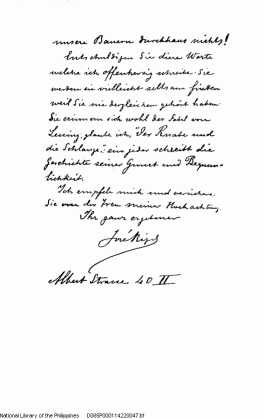 unsere Bauern durchhaus nichts!
Entschuldigen Sie diese Worte
welche ich offenherzig schreibe. Sie
werden sie vielleicht seltsam finden
weil Sie nie dergleichen gehört haben.
Sie erinnern sich wohl der Fabel von
Lessing, glaube ich, "Der Knabe und
die Schlange": ein jeder schreibt die
Geschichte seiner Gunst und Bequem-
lichkeit.
Ich empfehle mich und versichere
Sie von der Treu meiner Hochachtung
Ihr ganz ergebener
José Rizal
Albert Strasse 40 II
National Library of the Philippines